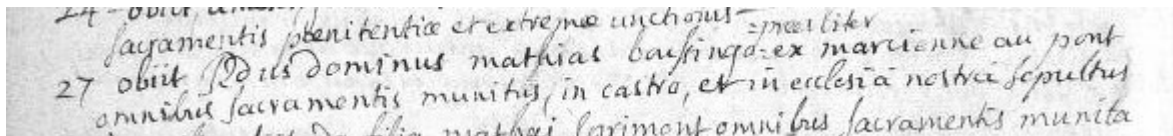 24 obiit
sacramentis pœnitentiæ et extremæ unctionis
27 obiit Rdus dominus mathias ex marcienne au pont
omnibus sacramentis munitus, in castro, et in ecclesiâ nostrâ sepultus
filia mathæi omnibus sacramentis munita